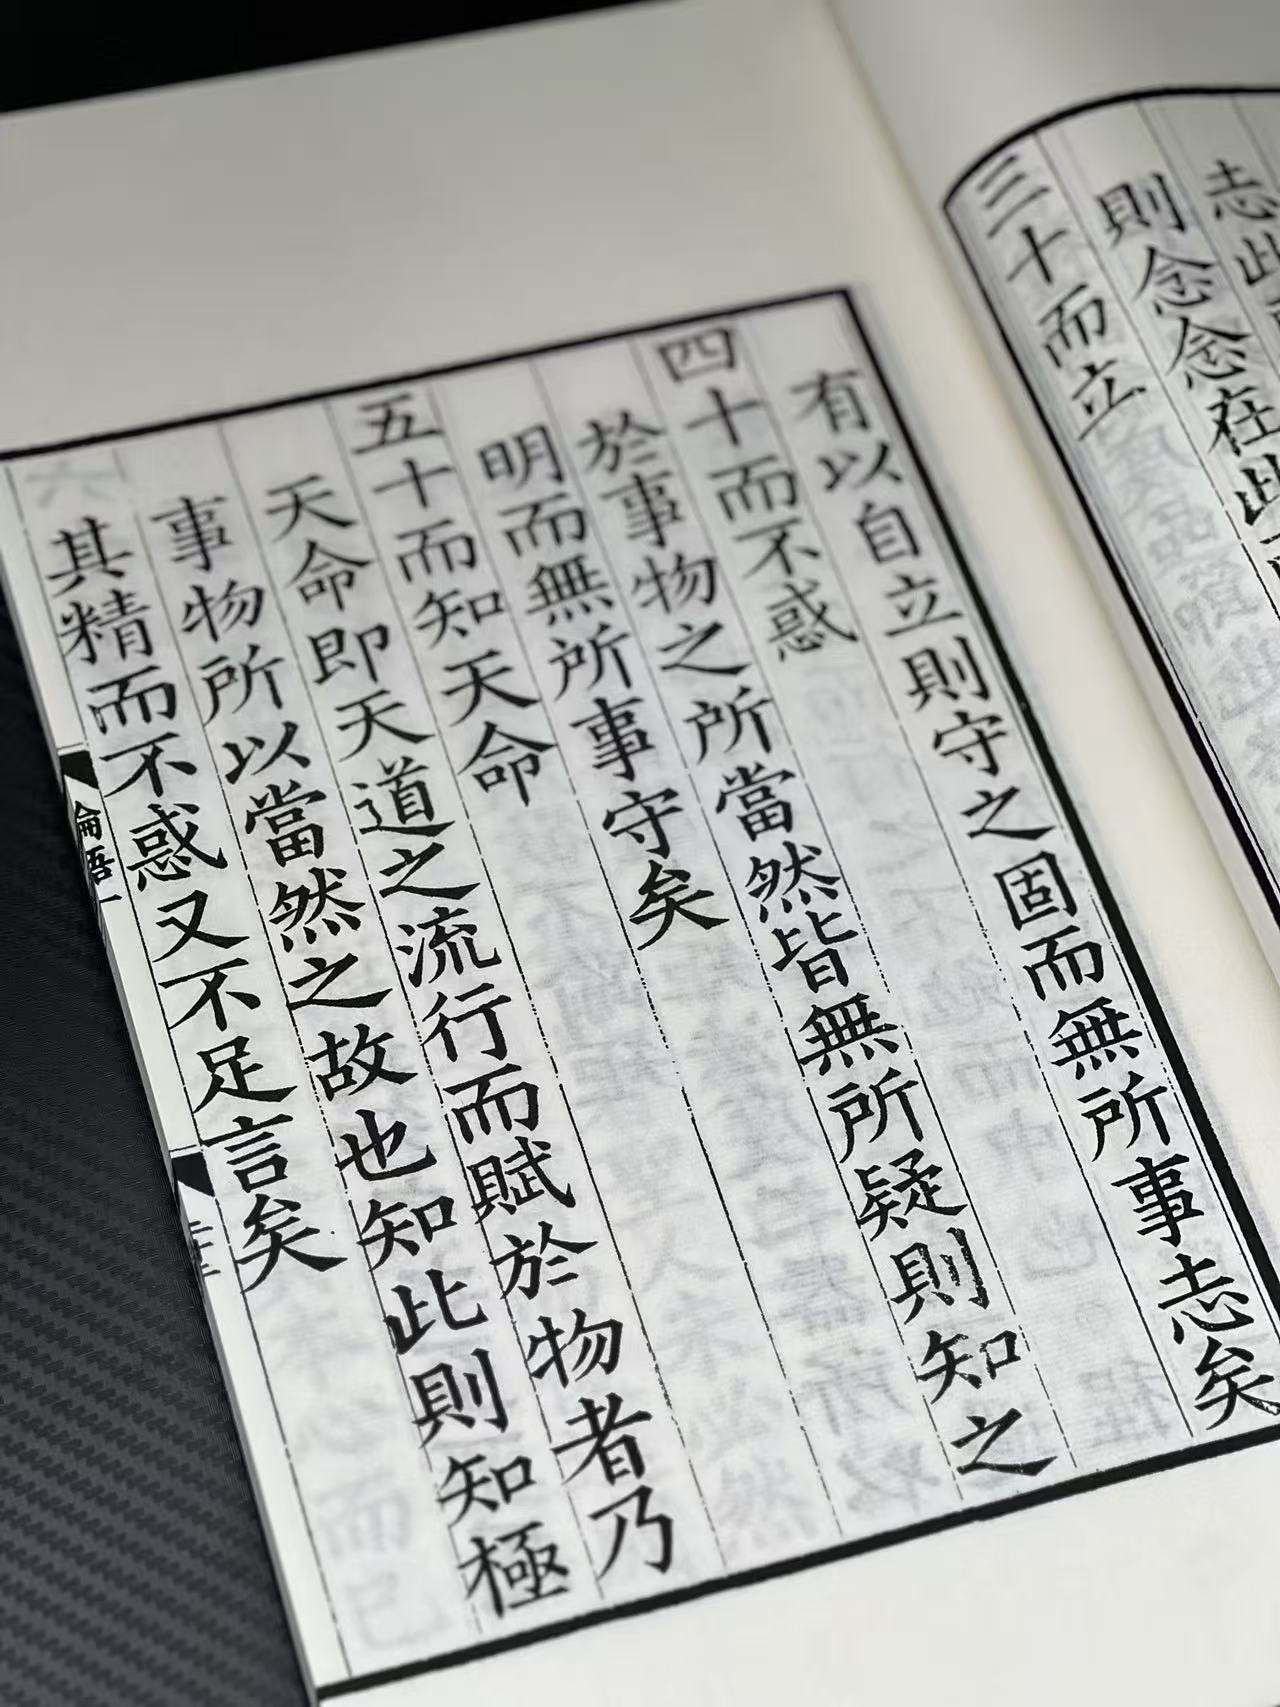 志此
則念念在此
三十而立
有以自立則守之固而無所事志矣
四十而不惑
於事物之所當然皆無所疑則知之
明而無所事守矣
五十而知天命
天命即天道之流行而賦於物者乃
事物所以當然之故也知此則知極
其精而不惑又不足言矣
論語一